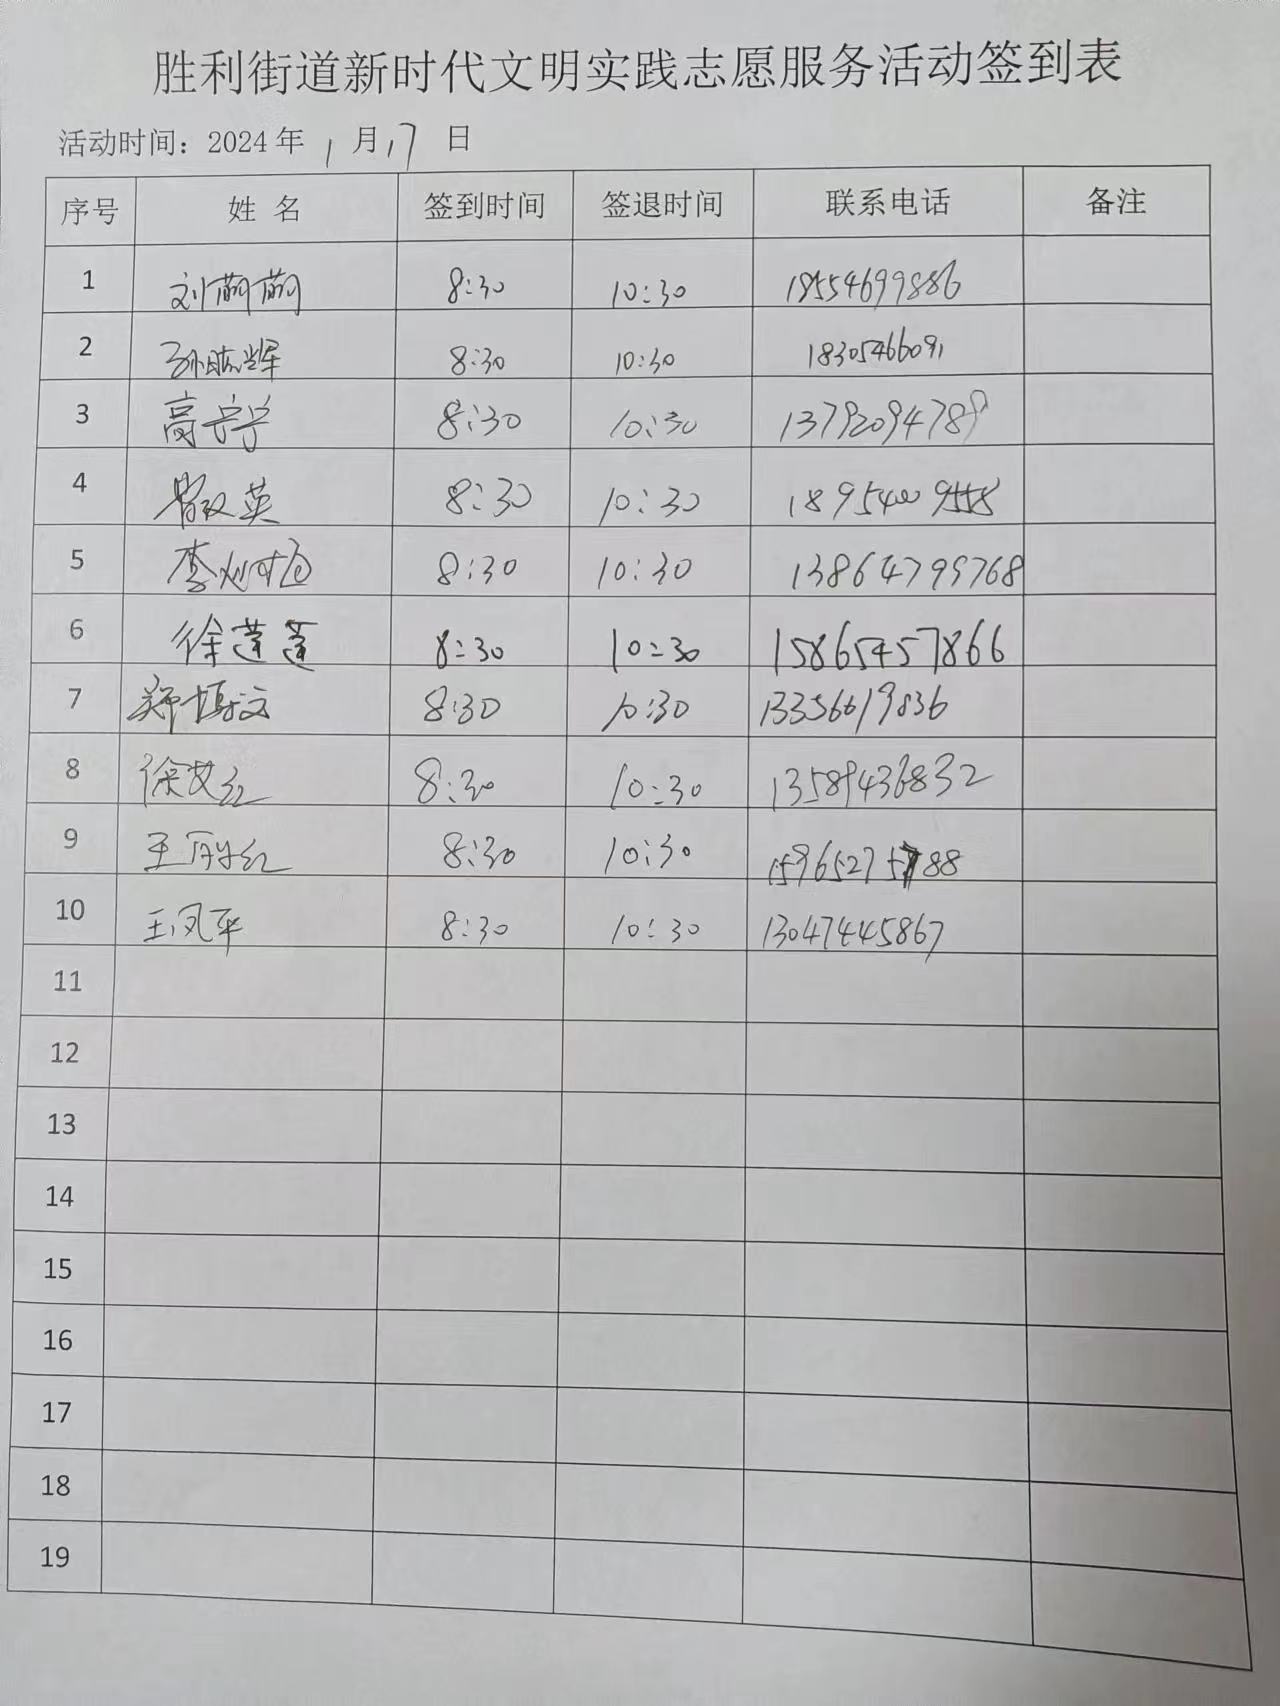 胜利街道新时代文明实践志愿服务活动签到表
活动时间：2024 年 1 月 17 日
序号 姓 名 签到时间 签退时间 联系电话 备注
1 刘萌萌 8:30 10:30 18554699886
2 孙晓辉 8:30 10:30 18305466091
3 高 8:30 10:30 13792094789
4 英 8:30 10:30
5 李 8:30 10:30 13864799768
6 徐莲莲 8:30 10:30 15865457866
7 郑博文 8:30 10:30 13356619836
8 徐艾红 8:30 10:30 13589436832
9 王丽红 8:30 10:30 15965275788
10 王凤平 8:30 10:30 13047445867
11
12
13
14
15
16
17
18
19